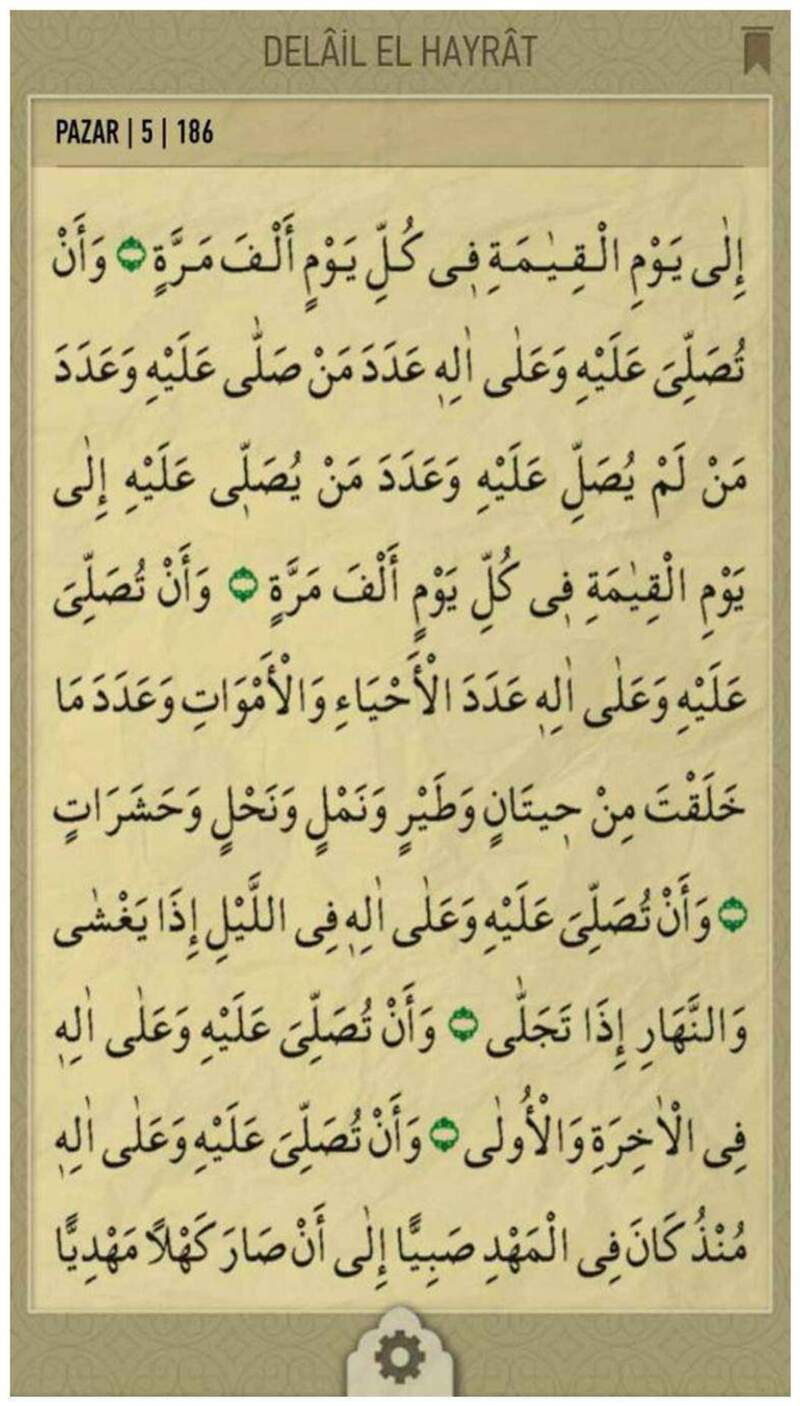 DELÂİL EL HAYRÂT
PAZAR | 5 | 186
إِلٰى يَوْمِ الْقِيٰمَةِ فٖى كُلِّ يَوْمٍ أَلْفَ مَرَّةٍ وَأَنْ
تُصَلِّىَ عَلَيْهِ وَعَلٰى اٰلِهٖ عَدَدَ مَنْ صَلّٰى عَلَيْهِ وَعَدَدَ
مَنْ لَمْ يُصَلِّ عَلَيْهِ وَعَدَدَ مَنْ يُصَلّٖى عَلَيْهِ إِلٰى
يَوْمِ الْقِيٰمَةِ فٖى كُلِّ يَوْمٍ أَلْفَ مَرَّةٍ وَأَنْ تُصَلِّىَ
عَلَيْهِ وَعَلٰى اٰلِهٖ عَدَدَ الْأَحْيَاءِ وَالْأَمْوَاتِ وَعَدَدَ مَا
خَلَقْتَ مِنْ حٖيتَانٍ وَطَيْرٍ وَنَمْلٍ وَنَحْلٍ وَحَشَرَاتٍ
وَأَنْ تُصَلِّىَ عَلَيْهِ وَعَلٰى اٰلِهٖ فِى اللَّيْلِ إِذَا يَغْشٰى
وَالنَّهَارِ إِذَا تَجَلّٰى وَأَنْ تُصَلِّىَ عَلَيْهِ وَعَلٰى اٰلِهٖ
فِى الْاٰخِرَةِ وَالْأُولٰى وَأَنْ تُصَلِّىَ عَلَيْهِ وَعَلٰى اٰلِهٖ
مُنْذُ كَانَ فِى الْمَهْدِ صَبِيًّا إِلٰى أَنْ صَارَ كَهْلًا مَهْدِيًّا